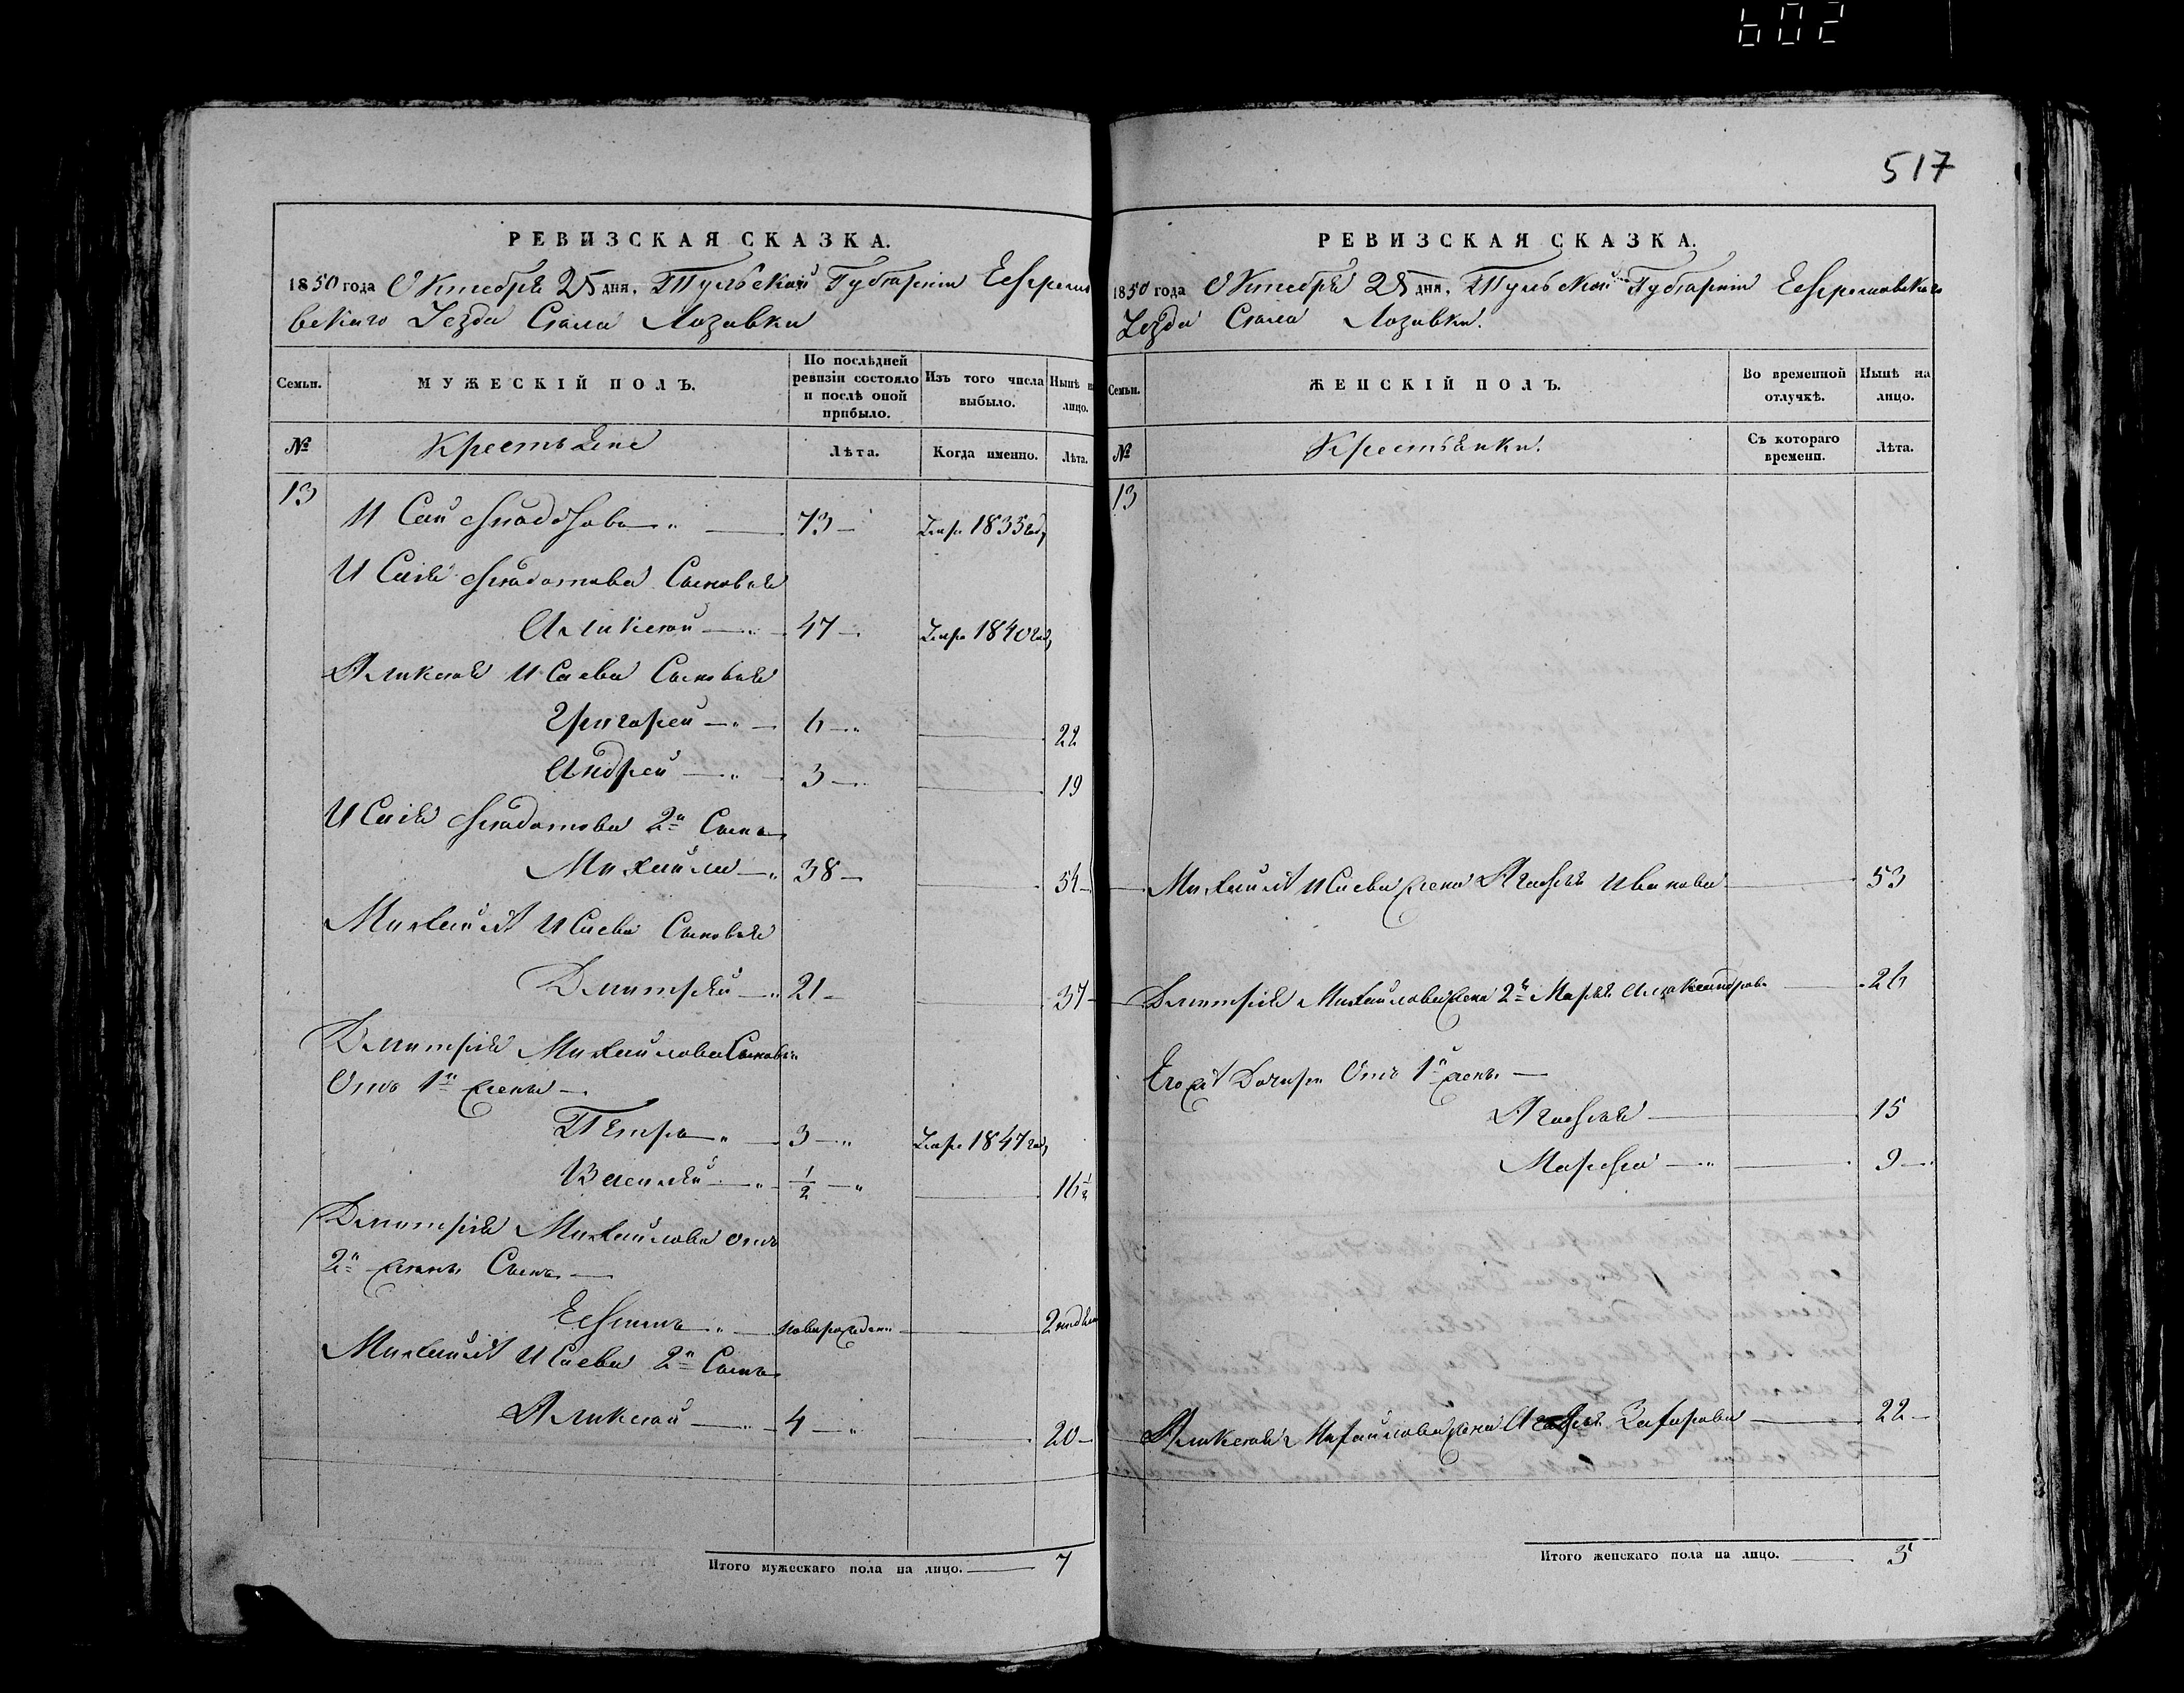 602
517
РЕВИЗСКАЯ СКАЗКА.
1850 года Октебря 25 дня. Тульской Губерніи Ефремов
вскаго Уезда Села Лозавки
Семьи.
МУЖЕСКІЙ ПОЛЪ.
По послѣдней ревизіи состояло и послѣ оной прибыло.
Изъ того числа выбыло.
Нынѣ на лицо.
№
Крестьяне
Лѣта.
Когда именно.
Лѣта.
13
Исай 73 Умре 1835 году
Исаія Сыновья
Аликсей 47 Умре 1840 году
Аликсея Исаева Сыновья
Григорей 6 22
Андрей 3 19
Исаія 2й Сынъ
Михайла 38 54
Михайлы Исаева Сыновья
Дмитрій 21 37
Дмитрія Михайлова Сыновья
Отъ 1й жены
Петръ 3 Умре 1847 году
Василій 1/2 16 1/2
Дмитрія Михайлова отъ
2й жены Сынъ
Ефимъ новорожден 2 недели
Михайлы Исаева 2й Сынъ
Аликсей 4 20
Итого мужескаго пола на лицо. 7
РЕВИЗСКАЯ СКАЗКА.
1850 года Октебря 25 дня. Тульской Губерніи Ефремовскаго
Уезда Села Лозавки.
Семьи.
ЖЕНСКІЙ ПОЛЪ.
Во временной отлучкѣ.
Нынѣ на лицо.
№
Крестьянки.
Съ котораго времени.
Лѣта.
13
Михайлы Исаева жена Агафья Иванова 53
Дмитрія Михайлова жена 2я Марья Александрова 26
Его же Дочери Отъ 1й жены
Агафья 15
Марфа 9
Аликсея Михайлова жена Захарова 22
Итого женскаго пола на лицо. 5